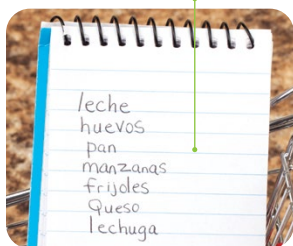 leche
huevos
pan
manzanas
frijoles
Queso
lechuga